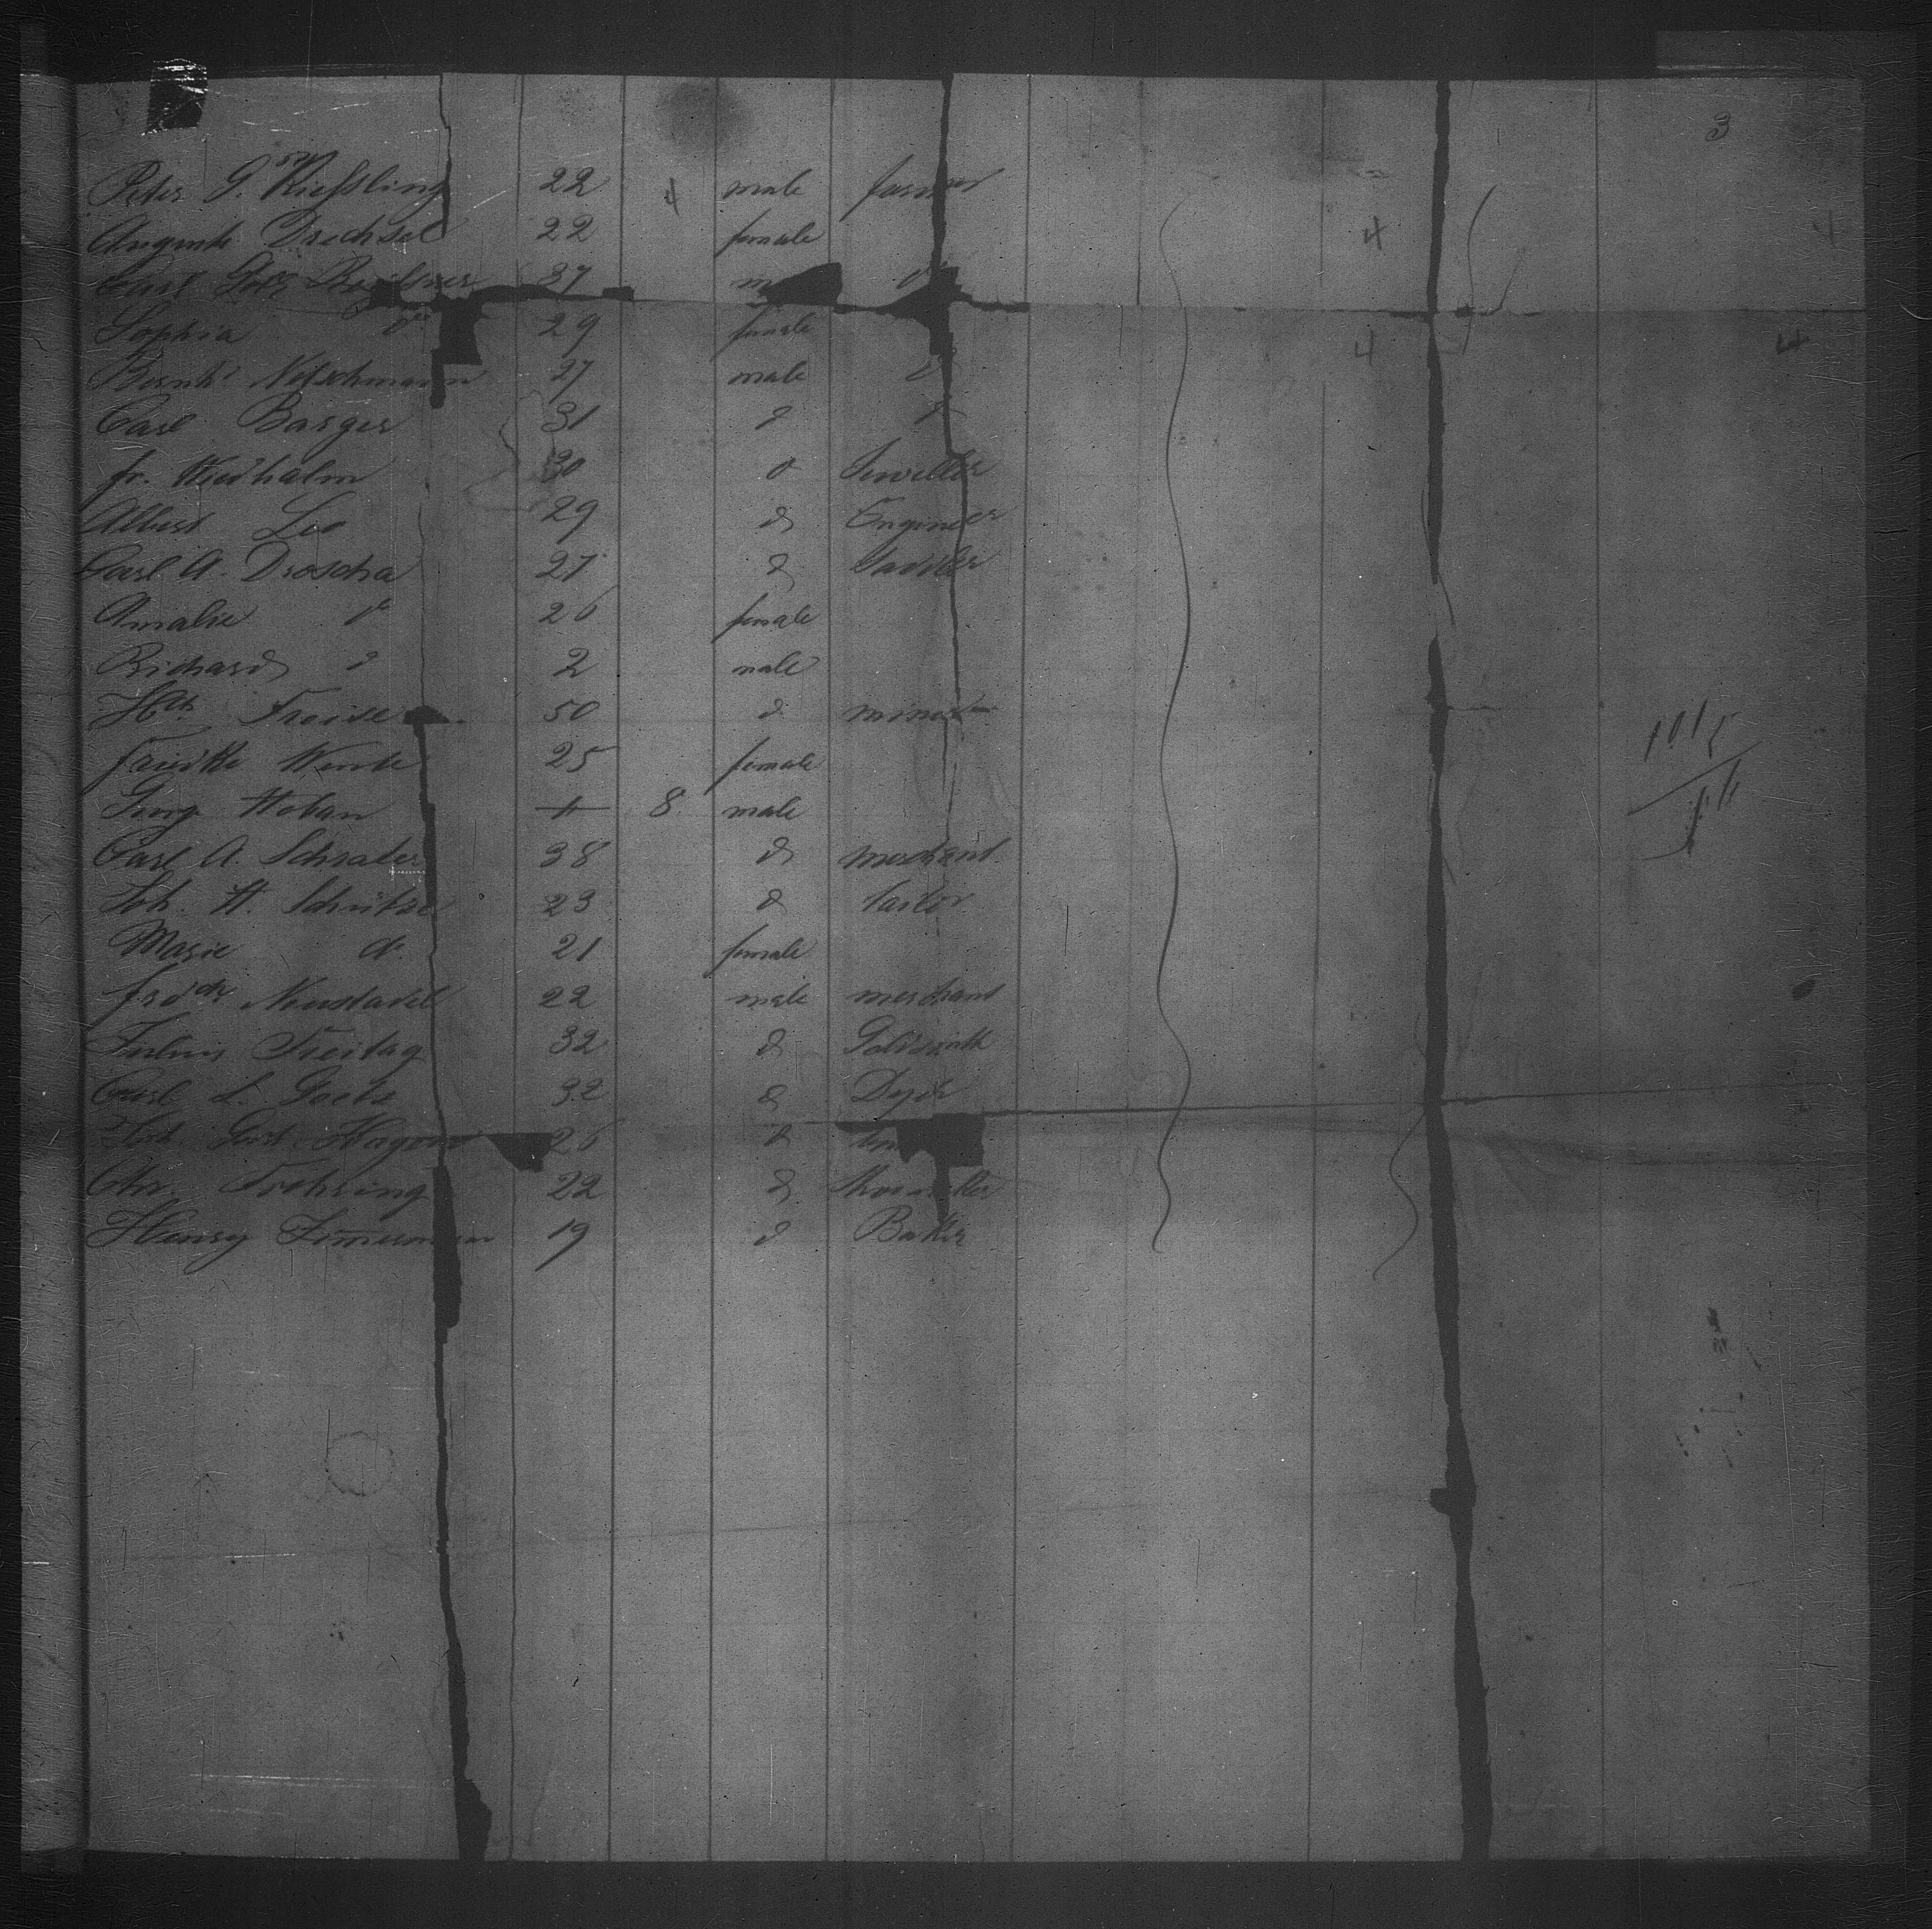 3
Peter G. Kießling 22 4 male farmer
Auguste Drechsel 22 female 4
Carl 37 m d
Sophia do 29 female 4 4
Bernhd Nitschmann 27 male d
Carl Barger 31 d d
fr. Wiedhalm 30 d Jeweller
Albert Leo 29 d Engineer
Carl A. Droscha 27 d Saddler
Amalie d 26 female
Richard d 2 male
Hch Freise 50 d miner
25 female
Hoban 8 male
Carl A. Schrader 38 d merchant
Joh. H. Schütze 23 d tailor
Marie d. 21 female
frdch Neustadel 22 male merchant
Julius Freitag 32 d Goldsmith
Carl L. Goetz 32 d Dyer
Joh. 26 d
Chr. Frehring 22 d Shoemaker
Henry Zimerman 19 d Baker